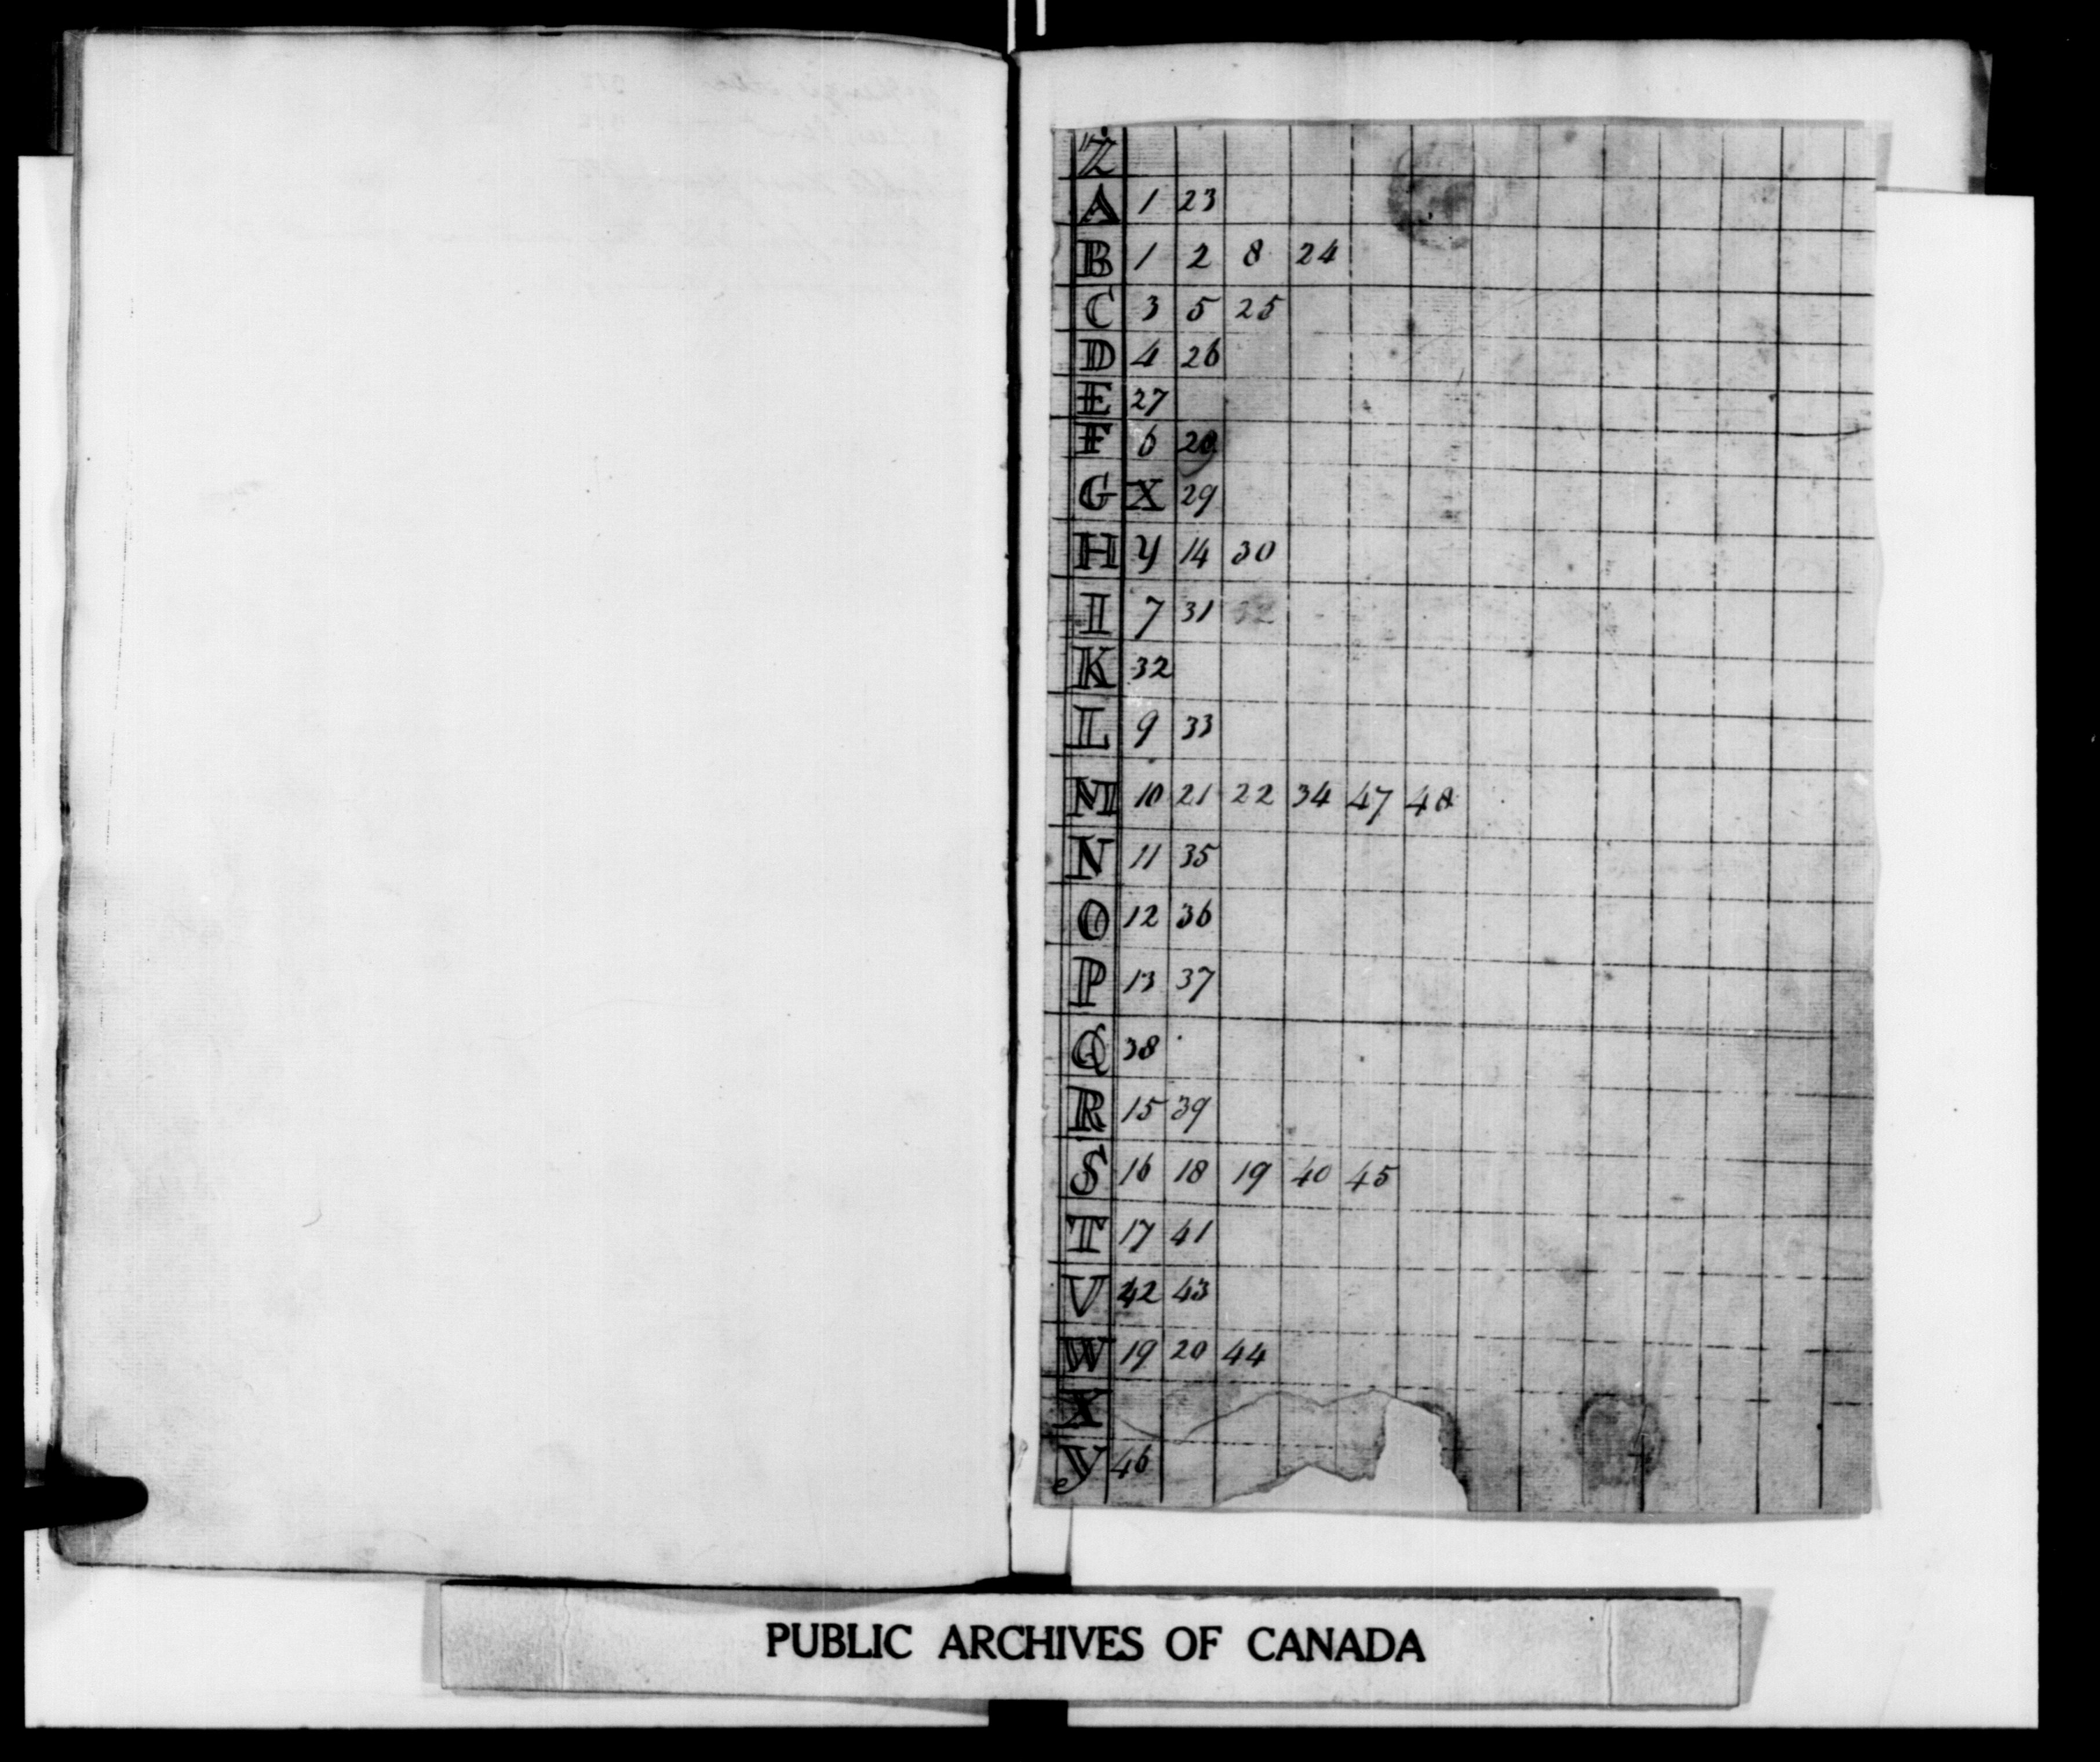 Z
A 1 23
B 1 2 8 24
C 3 5 25
D 4 26
E 27
F 6 28
G X 29
H y 14 30
I 7 31 32
K 32
L 9 33
M 10 21 22 34 47 48
N 11 35
O 12 36
P 13 37
Q 38
R 15 39
S 16 18 19 40 45
T 17 41
V 42 43
W 19 20 44
X
y 46
PUBLIC ARCHIVES OF CANADA